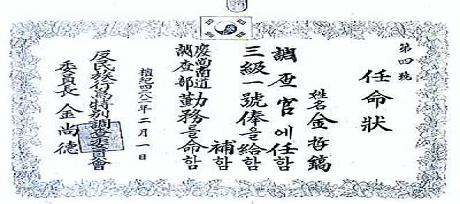 第四號
任命狀
姓名 金哲鎬
調査官에任함
三級一號俸을給함
補함
慶尚南道
調査部勤務를命함
檀紀四二八二年二月一日
反民族行爲特別調査委員會
委員長 金尚德